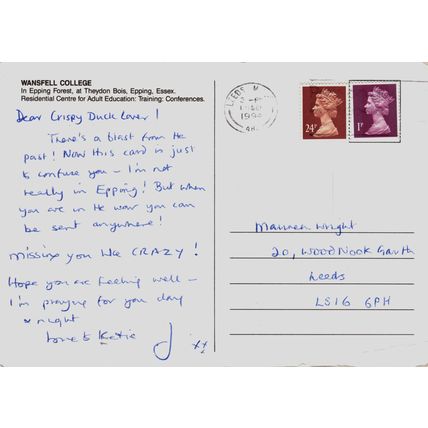 WANSFELL COLLEGE
In Epping Forest, at Theydon Bois, Epping, Essex.
Residential Centre for Adult Education: Training: Conferences.
Dear Crispy Duck Lover!
There's a blast from the
past! Now this card is just
to confuse you – I'm not
really in Epping! But when
you are in the war you can
be sent anywhere!
missing you like CRAZY!
Hope you are feeling well –
I'm praying for you day
& night
love to Katie
J
xx
LEEDS
1994
24P
1P
Maureen Wright
20, WOODNOOK Garth
Leeds
LS16 6PH